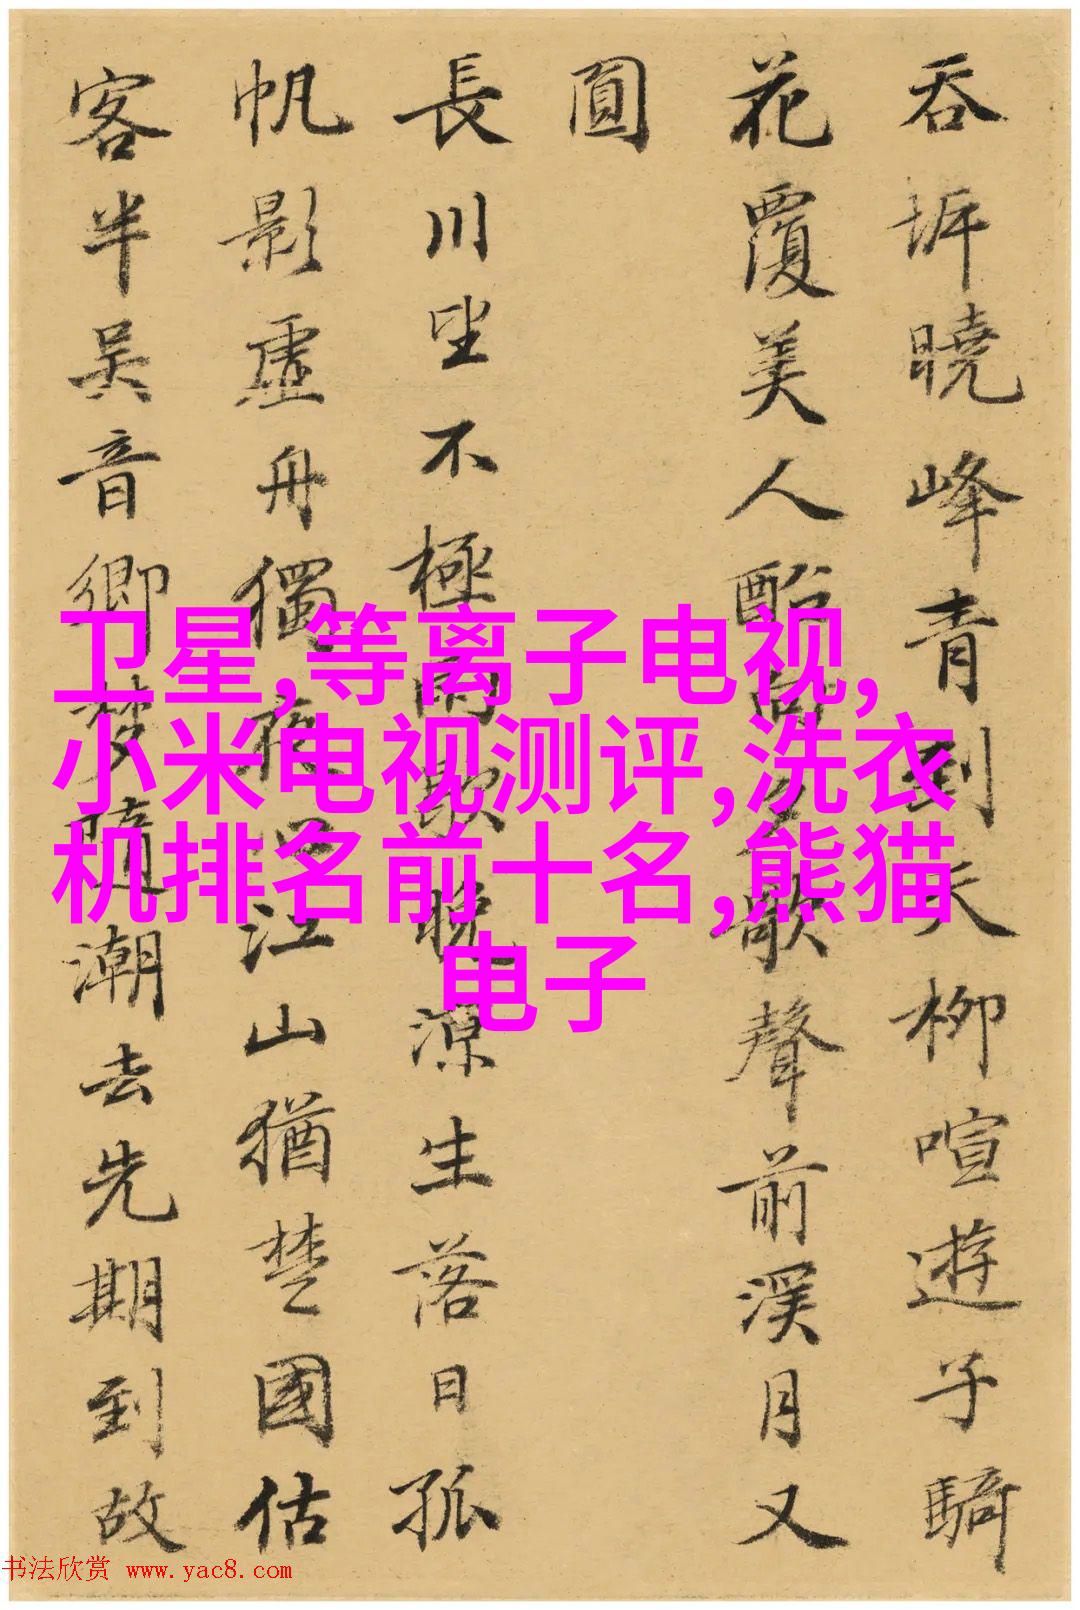 吞坼曉峰青到天柳喧遊子騎
花覆美人酩向夕歌聲前溪月又
圓
長川坐不極雨歇晚涼生落日孤
帆影虛舟獨夜深江山猶楚國估
客半吴音鄉梦隨潮去先期到故
卫星,等离子电视,
小米电视测评,洗衣
机排名前十名,熊猫
电子
书法欣赏 www.yac8.com